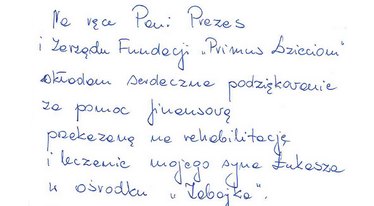 Na ręce Pani Prezes
i Zarządu Fundacji „Primus Dzieciom"
składam serdeczne podziękowanie
za pomoc finansową
przekazaną na rehabilitację
i leczenie mojego syna Łukasza
w ośrodku „Zabajka".